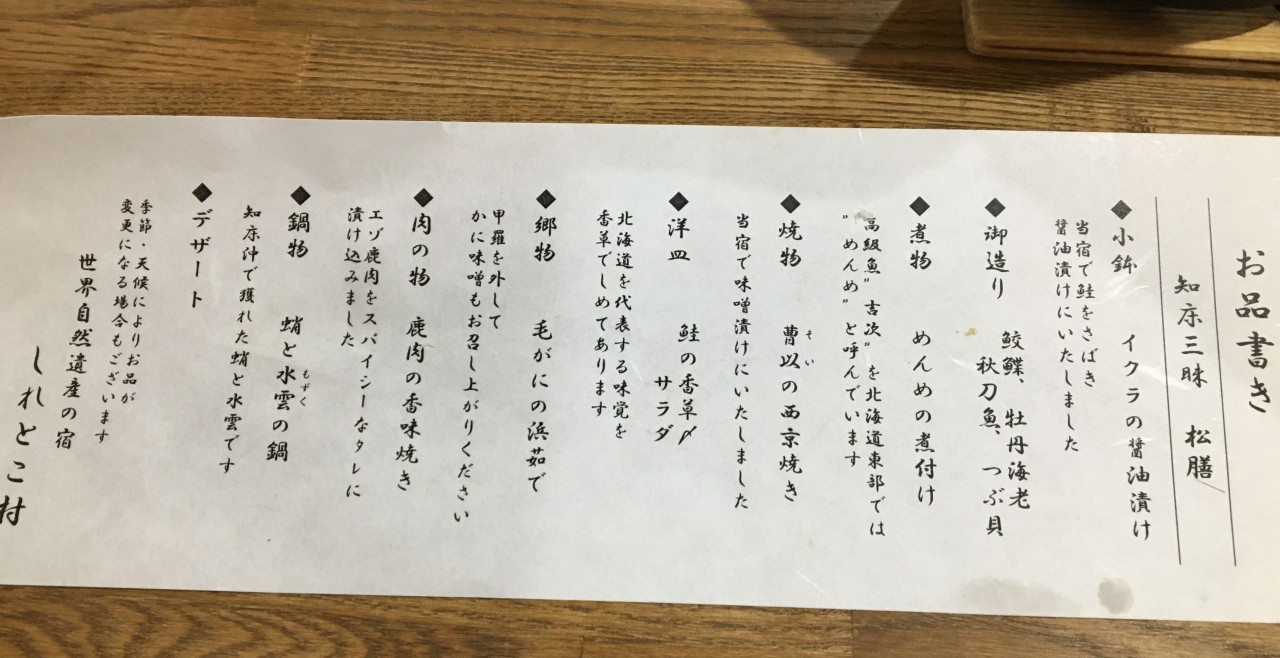 お品書き
知床三昧　松膳
◆小鉢　イクラの醤油漬け
当宿で鮭をさばき
醤油漬けにいたしました
◆御造り　鮫鰈、牡丹海老
秋刀魚、つぶ貝
◆煮物　めんめの煮付け
高級魚”吉次”を北海道東部では
”めんめ”と呼んでいます
◆焼物　曹以の西京焼き
そい
当宿で味噌漬けにいたしました
◆洋皿　鮭の香草〆
サラダ
北海道を代表する味覚を
香草でしめてあります
◆郷物　毛がにの浜茹で
甲羅を外して
かに味噌もお召し上がりください
◆肉の物　鹿肉の香味焼き
エゾ鹿肉をスパイシーなタレに
漬け込みました
◆鍋物　蛸と水雲の鍋
もずく
知床沖で獲れた蛸と水雲です
◆デザート
季節・天候によりお品が
変更になる場合もございます
世界自然遺産の宿
しれとこ村